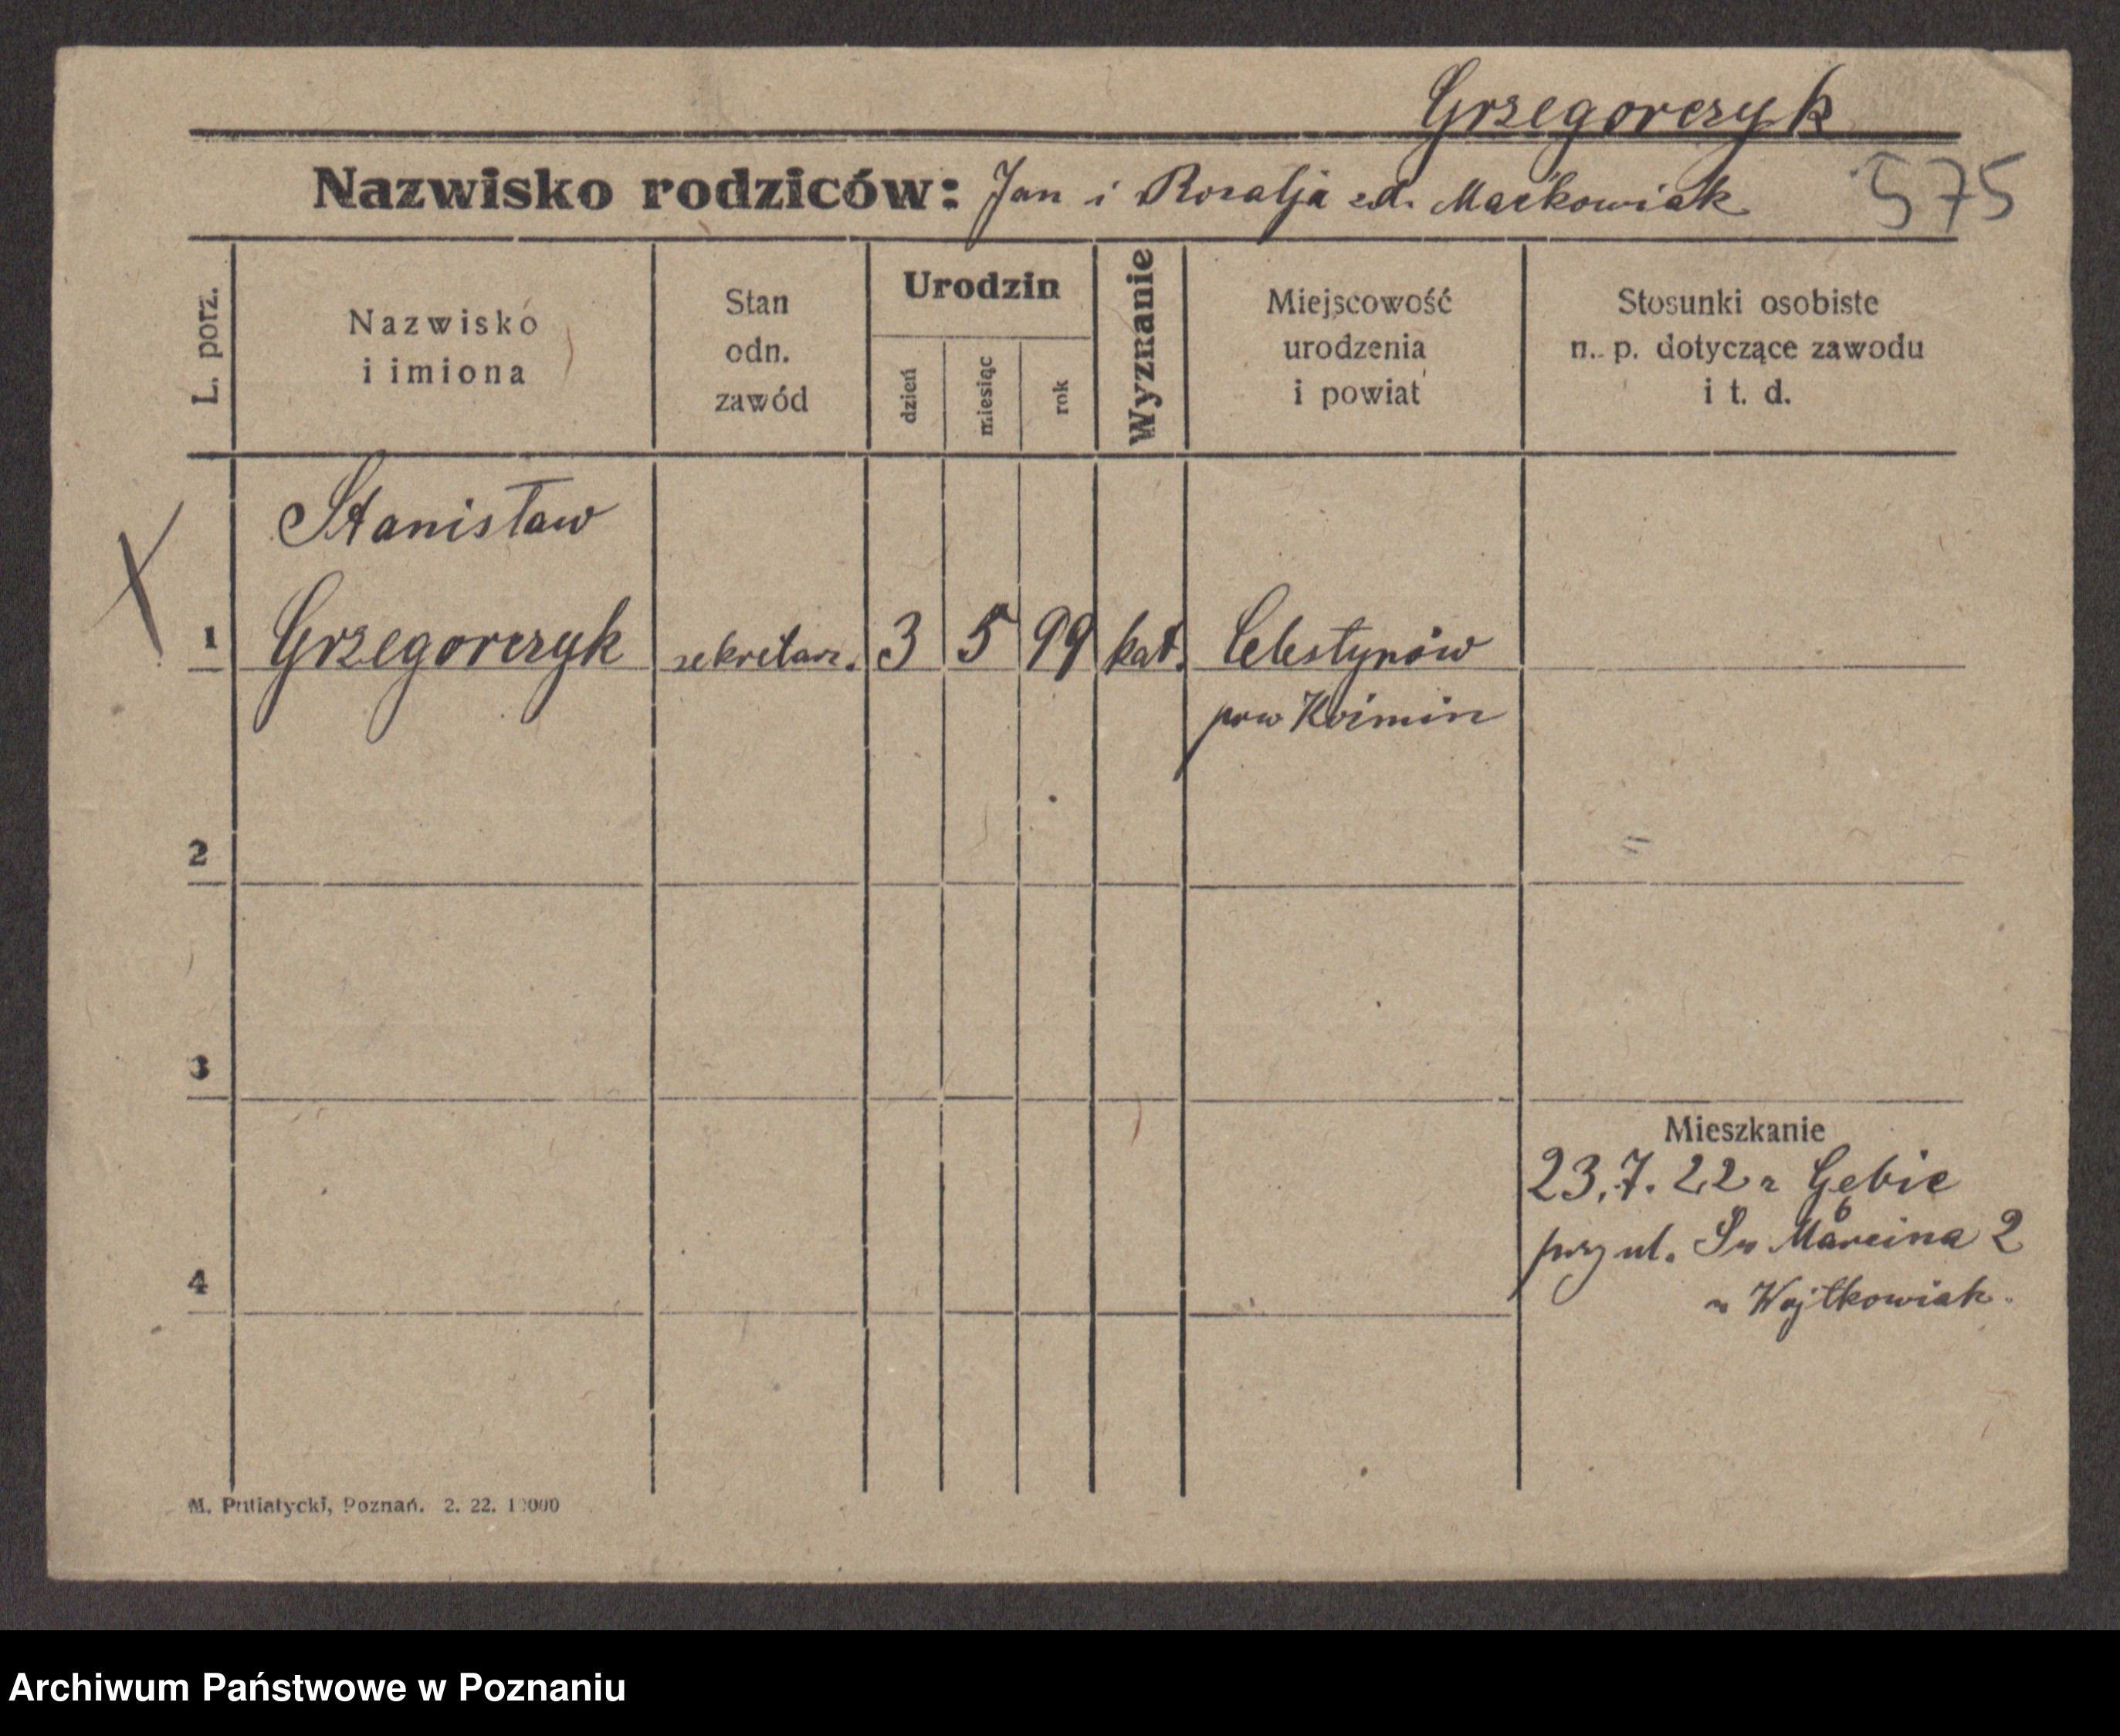 Grzegorczyk
Nazwisko rodziców: Jan i Rozalja zd. Maćkowiak 575
L. porz.
Nazwisko
i imiona
Stan
odn.
zawód
Urodzin
dzień
miesiąc
rok
Wyznanie
Miejscowość
urodzenia
i powiat
Stosunki osobiste
n. p. dotyczące zawodu
i t. d.
Stanisław
1 Grzegorczyk sekretarz. 3 5 99 kat. Celestynów
pow
2
3
Mieszkanie
23.7.22 z Gębic
przy ul. Św Marcina 2
4
u Wojtkowiak.
M. Putiatycki, Poznań. 2. 22. 10000
Archiwum Państwowe w Poznaniu